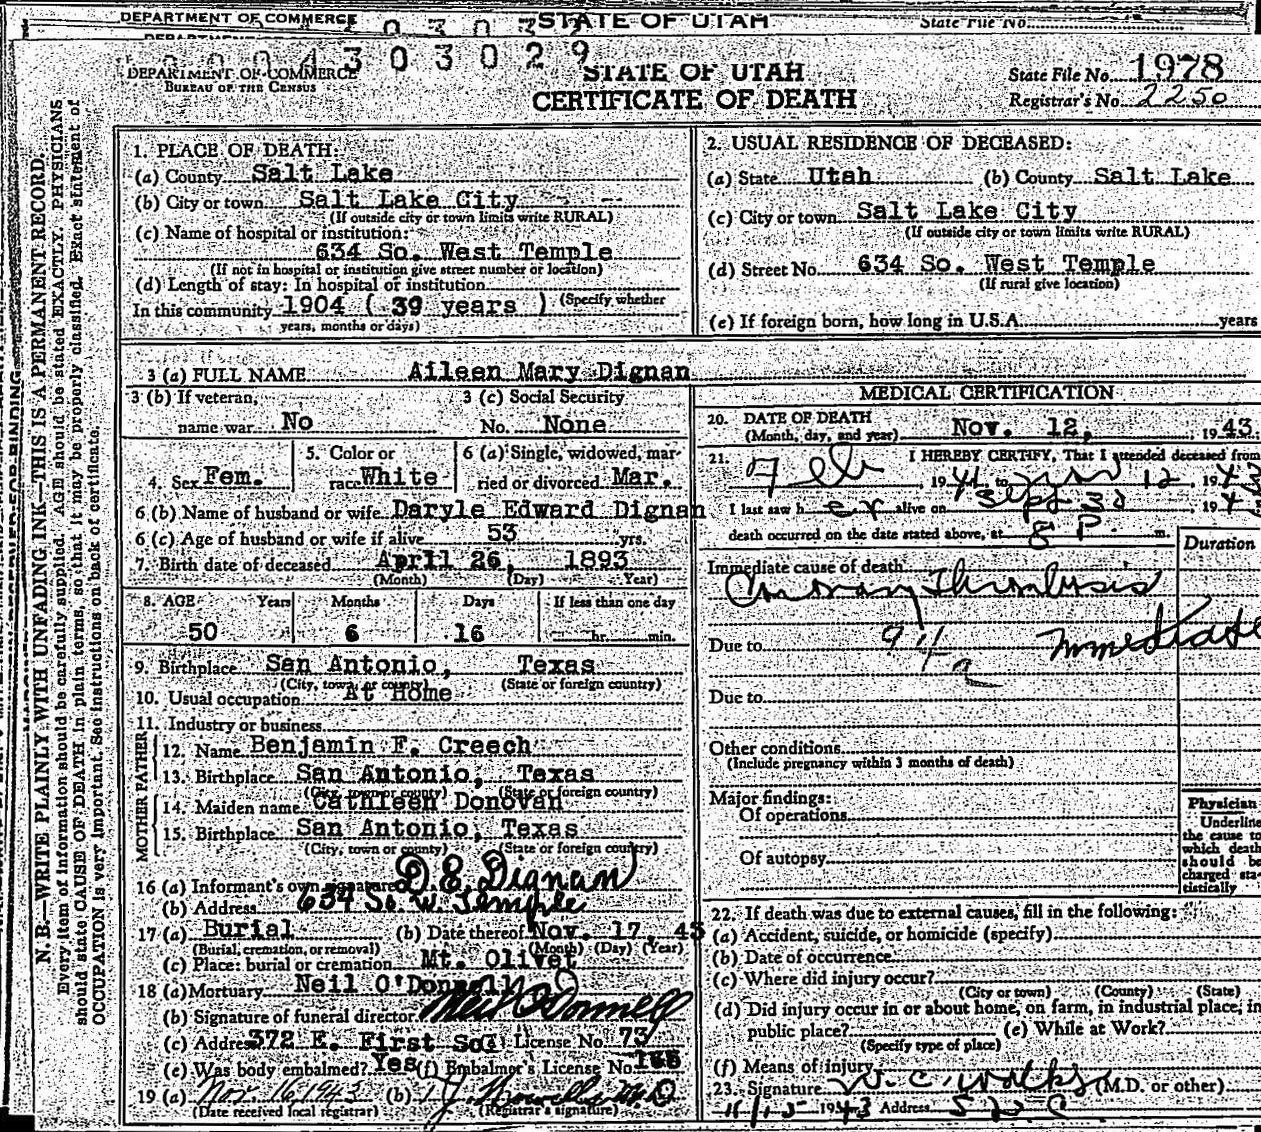 DEPARTMENT OF COMMERCE STATE OF UTAH State File No.
0 0 4 3 0 3 0 2 9
DEPARTMENT OF COMMERCE
BUREAU OF THE CENSUS
STATE OF UTAH
CERTIFICATE OF DEATH
State File No. 1978
Registrar's No. 2250
N. B.—WRITE PLAINLY WITH UNFADING INK—THIS IS A PERMANENT RECORD.
Every item of information should be carefully supplied. AGE should be stated EXACTLY. PHYSICIANS
should state CAUSE OF DEATH in plain terms, so that it may be properly classified. Exact statement of
OCCUPATION is very important. See instructions on back of certificate.
1. PLACE OF DEATH:
(a) County Salt Lake
(b) City or town Salt Lake City
(If outside city or town limits write RURAL)
(c) Name of hospital or institution:
634 So. West Temple
(If not in hospital or institution give street number or location)
(d) Length of stay: In hospital or institution
In this community 1904 ( 39 years ) (Specify whether
years, months or days)
2. USUAL RESIDENCE OF DECEASED:
(a) State Utah (b) County Salt Lake
(c) City or town Salt Lake City
(If outside city or town limits write RURAL)
(d) Street No. 634 So. West Temple
(If rural give location)
(e) If foreign born, how long in U.S.A. years
3 (a) FULL NAME Aileen Mary Dignan
3 (b) If veteran,
name war No
3 (c) Social Security
No. None
4. Sex Fem.
5. Color or
race White
6 (a) Single, widowed, mar-
ried or divorced Mar.
6 (b) Name of husband or wife Daryle Edward Dignan
6 (c) Age of husband or wife if alive 53 yrs.
7. Birth date of deceased April 26, 1893
(Month) (Day) (Year)
8. AGE Years Months Days If less than one day
50 6 16 hr. min.
9. Birthplace San Antonio, Texas
(City, town or county) (State or foreign country)
10. Usual occupation At Home
11. Industry or business
FATHER
12. Name Benjamin F. Creech
13. Birthplace San Antonio, Texas
(City, town or county) (State or foreign country)
MOTHER
14. Maiden name Cathleen Donovan
15. Birthplace San Antonio, Texas
(City, town or county) (State or foreign country)
16 (a) Informant's own signature D. E. Dignan
(b) Address 634 So. W. Temple
17 (a) Burial (b) Date thereof Nov. 17, 43
(Burial, cremation, or removal) (Month) (Day) (Year)
(c) Place: burial or cremation Mt. Olivet
18 (a) Mortuary Neil O'Donnell
(b) Signature of funeral director Neil O'Donnell
(c) Address 372 E. First So. License No. 73
(e) Was body embalmed? Yes (f) Embalmer's License No.
19 (a) Nov. 16, 1943 (b)
(Date received local registrar) (Registrar's signature)
MEDICAL CERTIFICATION
20. DATE OF DEATH
(Month, day, and year) Nov. 12, 1943
21. I HEREBY CERTIFY, That I attended deceased from
Feb 1941 to Nov 12, 1943
I last saw h er alive on Sept 1943
death occurred on the date stated above, at 8 P. m.
Duration
Immediate cause of death
Coronary Thrombosis
Due to 94a Immediate
Due to
Other conditions
(Include pregnancy within 3 months of death)
Major findings:
Of operations
Of autopsy
Physician
Underline
the cause to
which death
should be
charged sta-
tistically
22. If death was due to external causes, fill in the following:
(a) Accident, suicide, or homicide (specify)
(b) Date of occurrence
(c) Where did injury occur?
(City or town) (County) (State)
(d) Did injury occur in or about home, on farm, in industrial place, in
public place? (e) While at Work?
(Specify type of place)
(f) Means of injury
23. Signature W. C. Walks (M.D. or other)
11/15 1943 Address